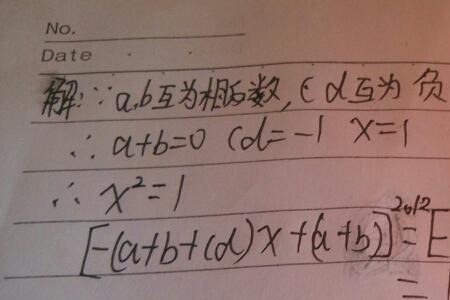 No.
Date
解:∵a,b互为相反数,cd互为负
∴a+b=0 cd=-1 x=1
∴x²=1
[-(a+b+cd)x+(a+b)]²⁰¹²=[
=